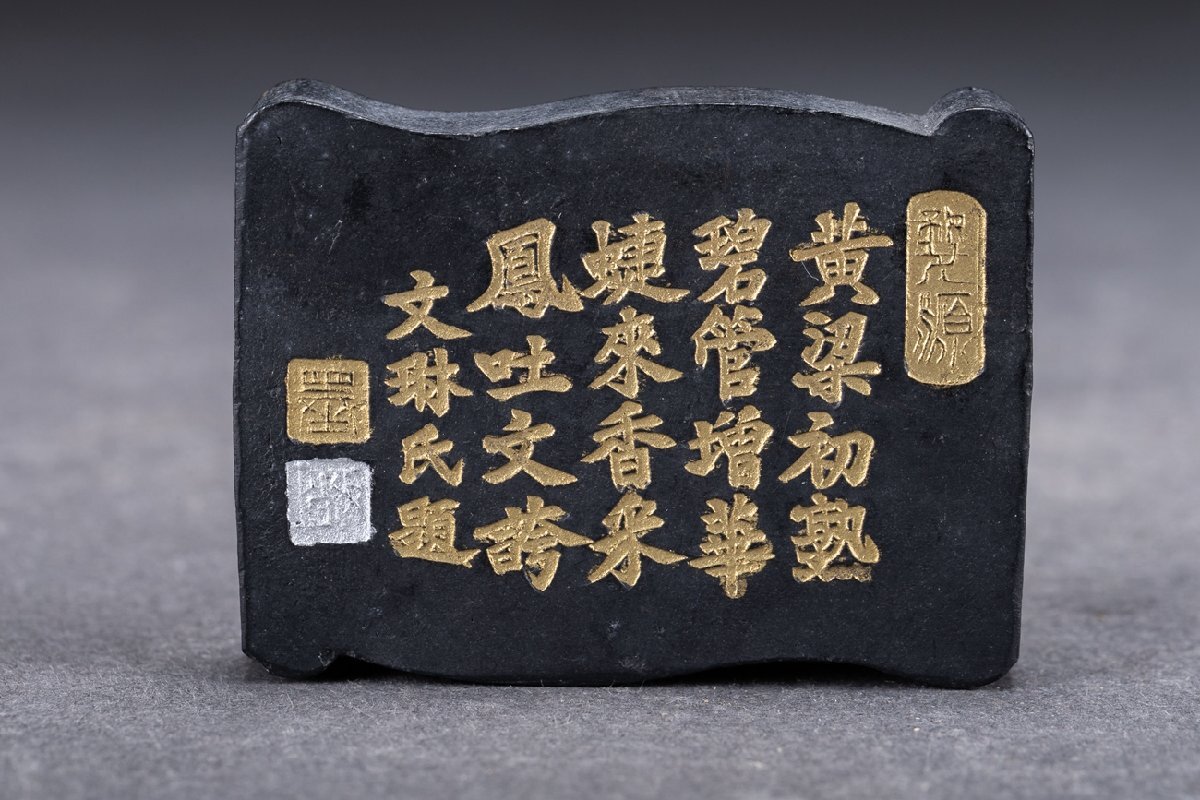 黃梁初熟
碧管增華
蜨來香采
鳳吐文誇
文琳氏題